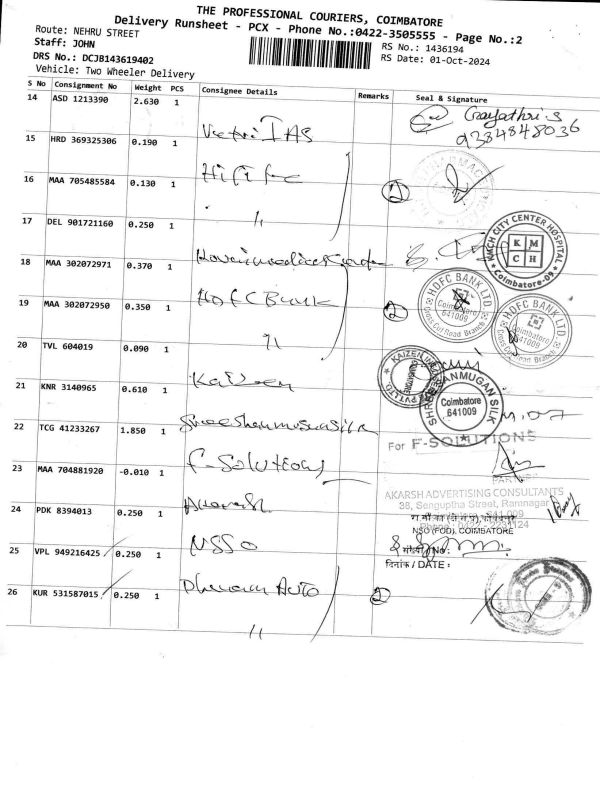 THE PROFESSIONAL COURIERS, COIMBATORE
Delivery Runsheet - PCX - Phone No.:0422-3505555 - Page No.:2
Route: NEHRU STREET
RS No.: 1436194
Staff: JOHN
RS Date: 01-Oct-2024
DRS No.: DCJB143619402
Vehicle: Two Wheeler Delivery
S No Consignment No Weight PCS Consignee Details Remarks Seal & Signature
14 ASD 1213390 2.630 1 Vetri IAS Gayathri.S
9384848036
15 HRD 369325306 0.190 1
16 MAA 705485584 0.130 1 " 2
17 DEL 901721160 0.250 1
KMCH CITY CENTER HOSPITAL
K M
C H
Coimbatore-09
18 MAA 302072971 0.370 1 HDFC Bank
HDFC BANK LTD
Coimbatore
641009
Cross Cut Road Branch
19 MAA 302072950 0.350 1 " 2
HDFC BANK LTD
Coimbatore
641009
Cross Cut Road Branch
20 TVL 604019 0.090 1 Kaizen
KAIZEN
PVT LTD.
21 KNR 3140965 0.610 1 Shree Shanmugan Silk
SHREE SHANMUGAN SILK
Coimbatore
641009
22 TCG 41233267 1.850 1 F-Solutions
For F-SOLUTIONS
PARTNER
23 MAA 704881920 -0.010 1 Akarsh
AKARSH ADVERTISING CONSULTANTS
38, Senguptha Street, Ramnagar
24 PDK 8394013 0.250 1 NSSO
NSO (FOD), COIMBATORE
25 VPL 949216425 0.250 1 Auto
दिनांक / DATE :
26 KUR 531587015 0.250 1 " 2